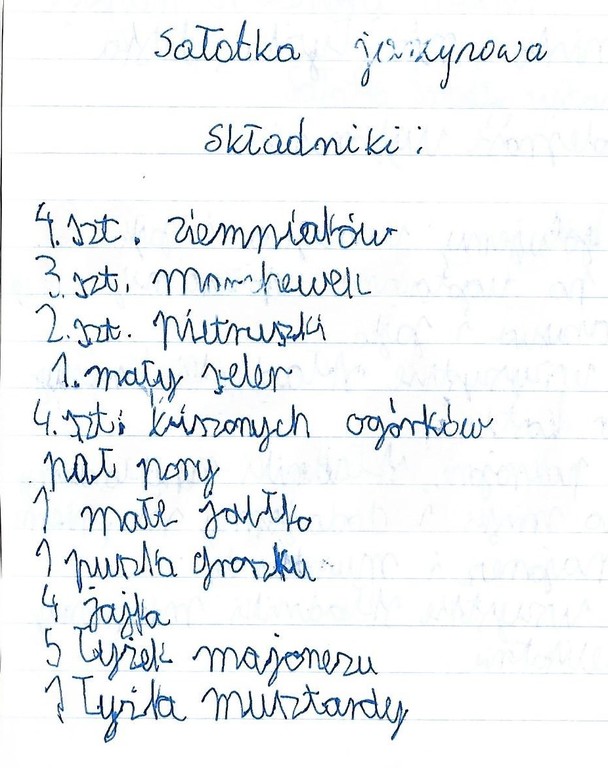 Sałatka jarzynowa
Składniki:
4. szt. ziemniaków
3. szt. marchewek
2. szt. pietruszki
1. mały seler
4. szt. kiszonych ogórków
pał pory
1 małe jabłko
1 puszka groszku
4 jajka
5 łyżek majonezu
1 łyżka musztardy